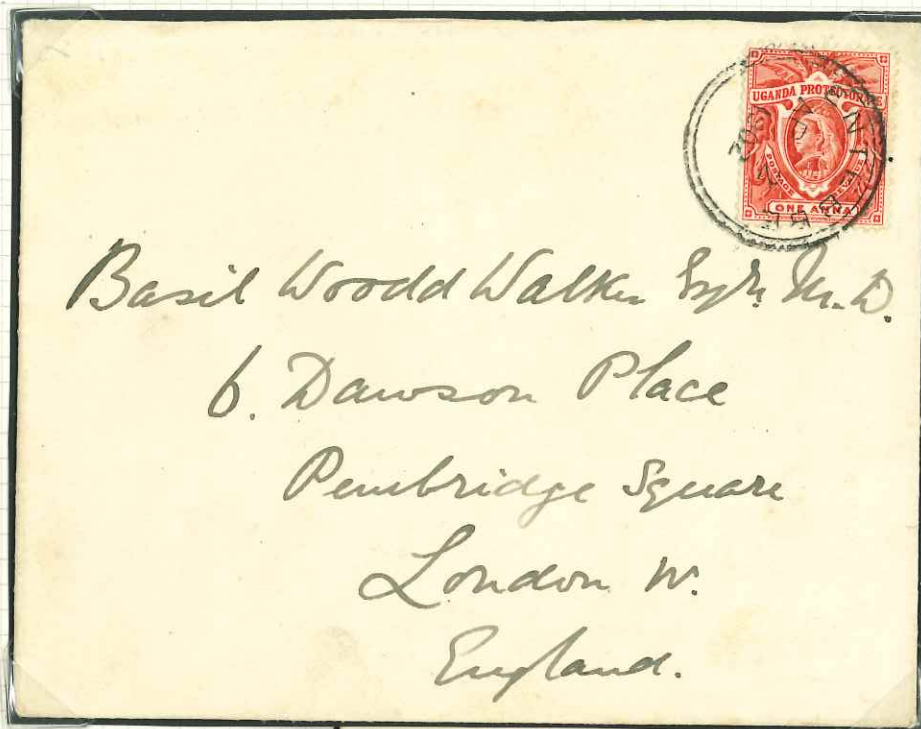 UGANDA PROTECTORATE
POSTAGE REVENUE
ONE ANNA
ENTEBBE
Basil Woodd Walker Esqre. M.D.
6. Dawson Place
Pembridge Square
London W.
England.